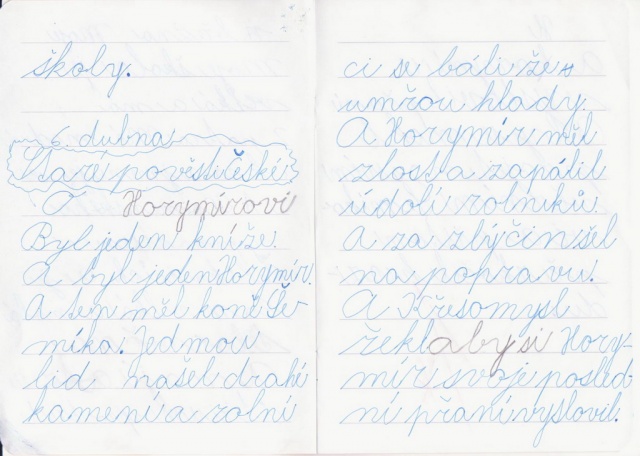 školy.
6. dubna
Staré pověsti České
O Horymírovi
Byl jeden kníže.
A byl jeden Horymír.
A ten měl koně Še
míka. Jednou
lid našel drahé
kamení a rolní
ci se báli že
umřou hlady.
A Horymír měl
zlost a zapálil
údolí rolníků.
A za zlý čin šel
na popravu.
A Křesomysl
řekl aby si Hory-
mír svoje posled-
ní přaní vyslovil.